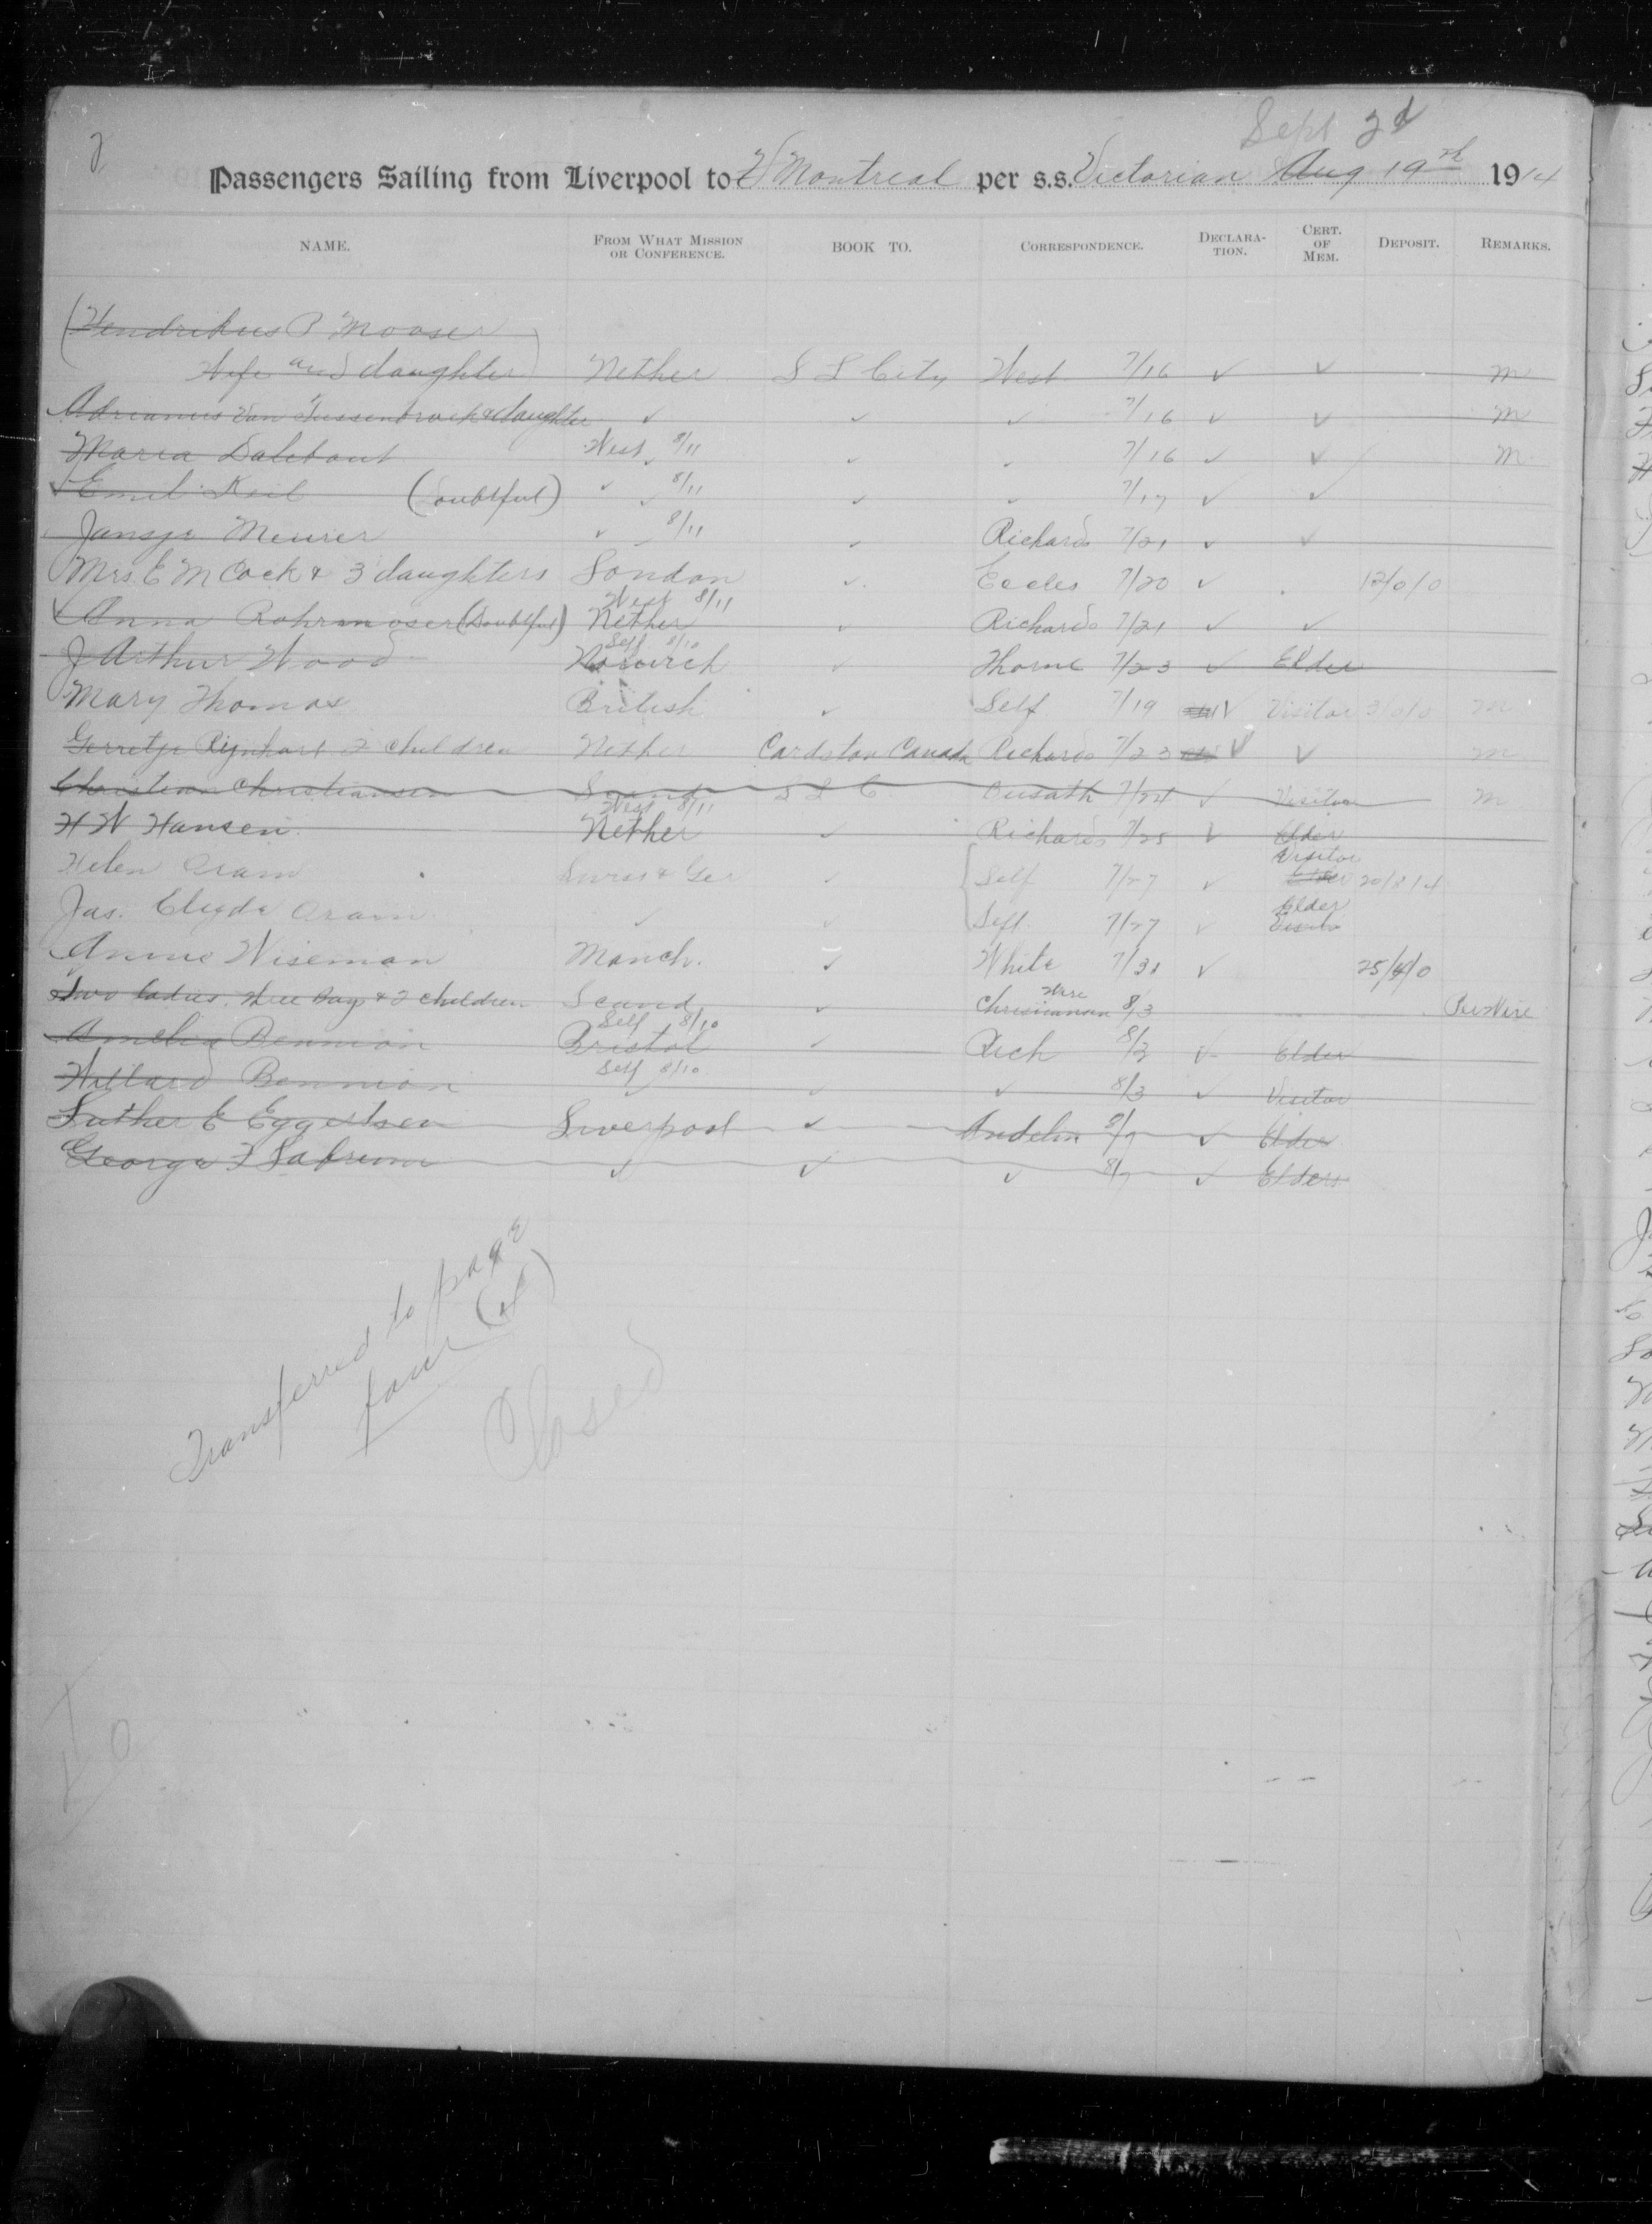 2
Sept 2d
Passengers Sailing from Liverpool to Montreal per s.s. Victorian Aug 19th 1914
NAME. FROM WHAT MISSION OR CONFERENCE. BOOK TO. CORRESPONDENCE. DECLARATION. CERT. OF MEM. DEPOSIT. REMARKS.
(Hendrikus P Mooser
Wife and daughter) Nether S L City West 7/16 ✓ ✓ M
Adrianus Van Tussenbroek & daughter ✓ ✓ ✓ 7/16 ✓ ✓ M
Maria Dalebout West 8/11 ✓ ✓ ✓ 7/16 ✓ ✓ M
✓ Emil Keil (Doubtful) ✓ 8/11 ✓ ✓ ✓ 7/17 ✓ ✓
Jansje Meurer ✓ 8/11 ✓ Richards 7/21 ✓ ✓
Mrs. E M Cock & 3 daughters London ✓ Eccles 7/20 ✓ 12/0/0
West 8/11
✓ Anna Rohrmoser (Doubtful) Nether ✓ Richards 7/21 ✓ ✓
Self 8/10
J Arthur Wood Norwich ✓ Thorne 7/23 ✓ Elder
Mary Thomas British ✓ Self 7/19 ✓ Visitor 3/0/0 M
Gerretje Rijnhart 2 children Nether Cardston Canada Richards 7/23 ✓ ✓ M
Christian Christiansen Scand S L C 7/24 ✓ Visitor M
West 8/11
H W Hansen Nether ✓ Richards 7/25 ✓ Elder
Visitor
Helen Oram Swiss & Ger ✓ Self 7/27 ✓ 20/8/4
Elder
Jas. Clyde Oram ✓ ✓ Self 7/27 ✓ Visitor
Annie Wiseman Manch. ✓ White 7/31 ✓ 25/4/0
Wire
Two ladies, three boys & 2 children Scand ✓ Christiansen 8/3 Per Wire
Self 8/10
Amelia Bennion Bristol ✓ Rich 8/3 ✓ Elder
Self 8/10
Willard Bennion ✓ ✓ ✓ 8/3 ✓ Visitor
Luther E Eggertsen Liverpool ✓ Andelin 8/7 ✓ Elder
George F ✓ ✓ ✓ 8/7 ✓ Elders
Transferred to page
four (4)
Closed